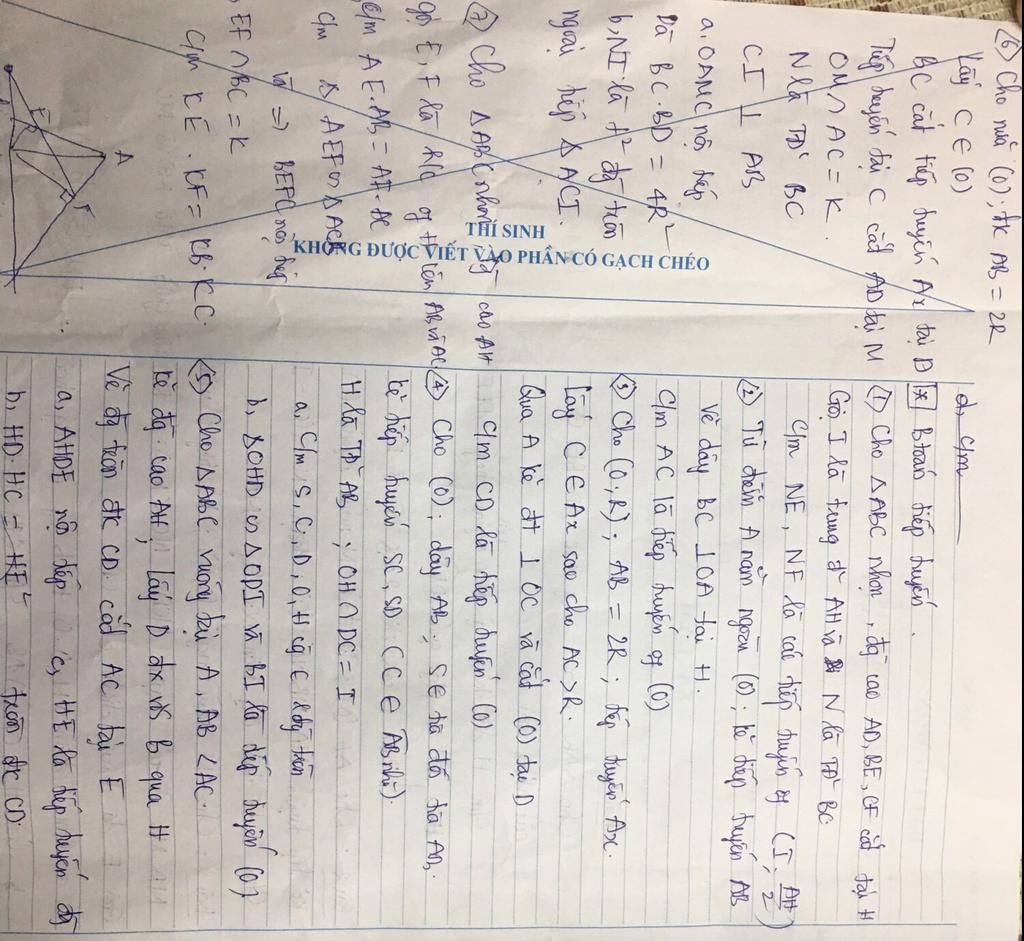 ⑥ Cho nửa (O); đk AB = 2R
Lấy C ∈ (O)
BC cắt tiếp tuyến Ax tại D
Tiếp tuyến tại C cắt AD tại M
OM ∩ AC = K.
N là TĐ' BC
CI ⊥ AB
a, OAMC nội tiếp
BC.BD = 4R²
b, NI là t² đg tròn
ngoại tiếp Δ ACI.
⑦ Cho ΔABC nhọn đg cao AH
gọi E, F là h/c of H lên AB và AC
c/m AE.AB = AF.AC
c/m Δ AEF ∽ Δ ACB
⇒ BEFC nội tiếp
EF ∩ BC = K
C/m KE.KF = KB.KC.
A
E
F
THÍ SINH
KHÔNG ĐƯỢC VIẾT VÀO PHẦN CÓ GẠCH CHÉO
d, c/m
* B toán tiếp tuyến.
① Cho ΔABC nhọn, đg cao AD, BE, CF cắt tại H
Gọi I là trung đ' AH và N là TĐ' BC
C/m NE, NF là các tiếp tuyến of (I; AH/2)
② Từ điểm A nằm ngoài (O); kẻ tiếp tuyến AB
Vẽ dây BC ⊥ OA tại H.
C/m AC là tiếp tuyến of (O)
③ Cho (O;R); AB = 2R; tiếp tuyến Ax.
Lấy C ∈ Ax sao cho AC > R.
Qua A kẻ đt ⊥ OC và cắt (O) tại D
C/m CD là tiếp tuyến (O)
④ Cho (O); dây AB; S ∈ tia đối tia AB.
kẻ tiếp tuyến SC, SD (C ∈ AB nhỏ).
H là TĐ' AB; OH ∩ DC = I
a, C/m S, C, D, O, H cg ∈ 1 đg tròn
b, ΔOHD ∽ ΔODI và BI là tiếp tuyến (O)
⑤ Cho ΔABC vuông tại A, AB < AC.
kẻ đg cao AH, lấy D đx vs B qua H
Vẽ đg tròn đk CD cắt AC tại E
a, AHDE nội tiếp c, HE là tiếp tuyến đg
b, HD.HC = HE² tròn đk CD.